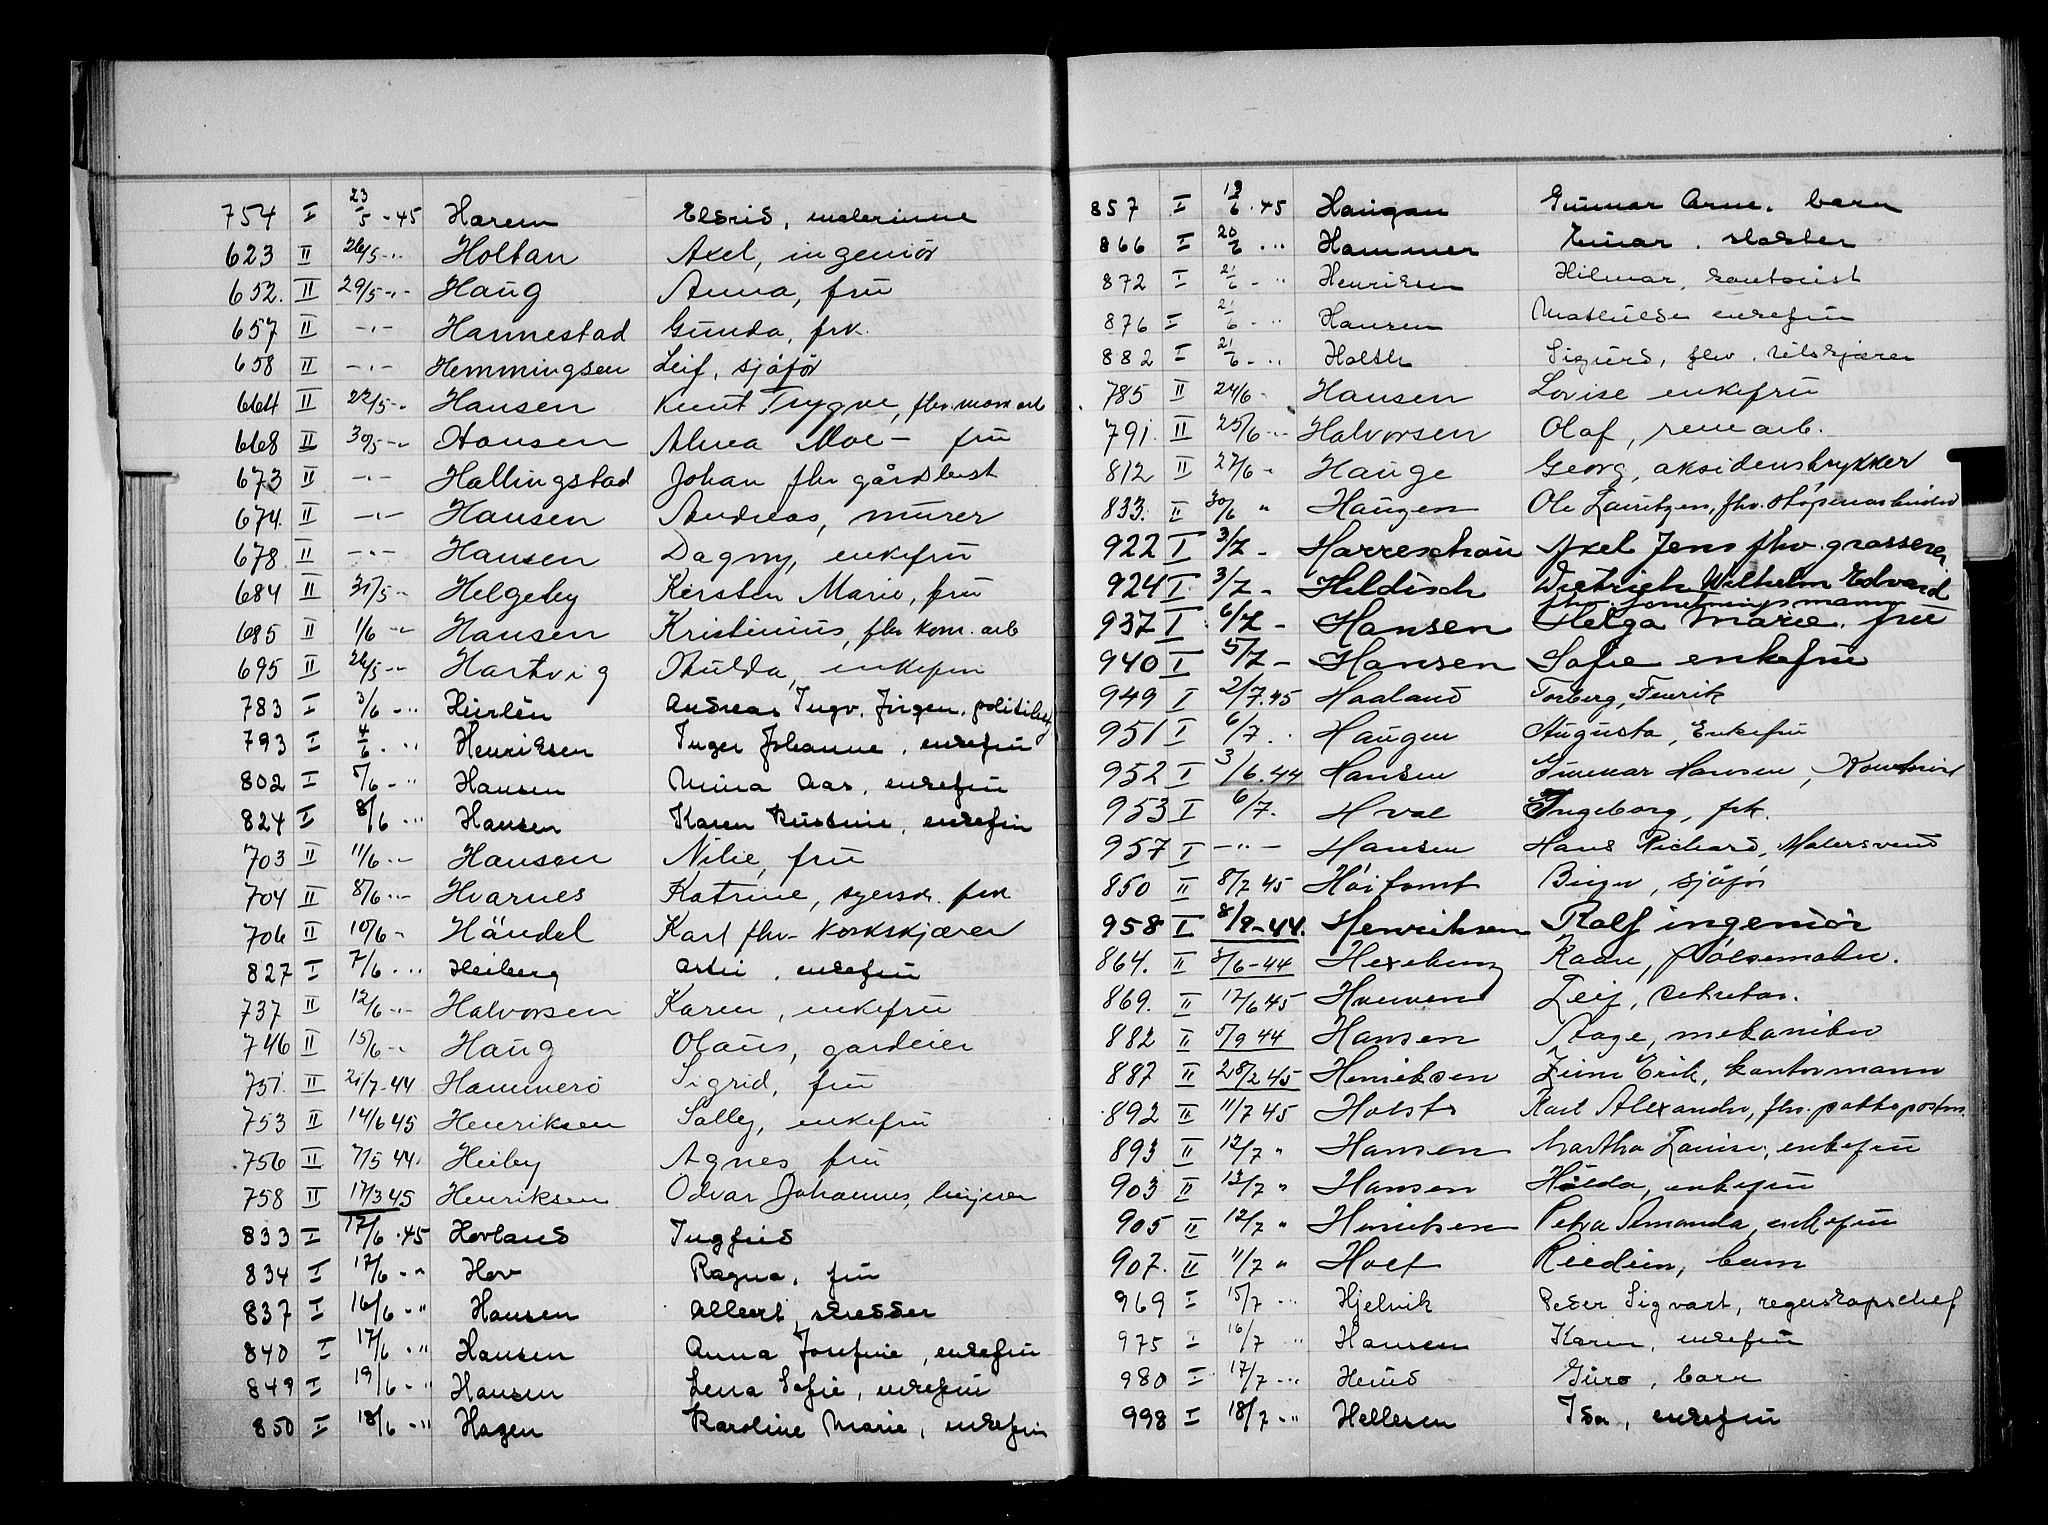 754 I 23/5 - 45 Harem Eldrid, malerinne
623 II 26/5 -"- Holtan Axel, ingeniör
652. II 29/5 -"- Haug Anna, fru
657 II -"- Hannestad Gunda, frk.
658 II -"- Hemmingsen Leif, sjåför
664 II 22/5 -"- Hansen Knut Trygve, fhv.
668 II 30/5 -"- Hansen Alma Moe - fru
673 II -"- Hallingstad Johan fhv gårdbest
674. II -"- Hansen Andreas, murer
678. II -"- Hansen Dagny, enkefru
684 II 31/5 -"- Helgeby Kirsten Marie, fru
685 II 1/6 -"- Hansen Kristinius, fhv kom. arb
695 II 26/5 -"- Hartvig Hulda, enkefru
783 I 3/6 -"- Andreas Ingv. Jörgen,
793 I 4/6 -"- Henriksen Inger Johanne, enkefru
802 I 5/6 -"- Hansen Mina Aas, enkefru
824 I 8/6 -"- Hansen Karen Kristine, enkefru
703 II 11/6 -"- Hansen Nilie, fru
704 II 8/6 -"- Hvarnes Katrine, syersk. frk
706 II 10/6 - Händel Karl fhv. korkskjærer
827 I 7/6 -"- Heiberg enkefru
737 II 12/6 -"- Halvorsen Karen, enkefru
746 II 15/6 -"- Haug Olaus, garderier
751. II 21/7-44 Hammerö Sigrid, fru
753 II 14/6 45 Henriksen Sally, enkefru
756 II 7/5 44. Heiby Agnes fru
758 II 17/3 45 Henriksen Odvar Johannes,
833 I 17/6 .45 Hovland Ingfrid
834 I 17/6 -"- Hov Ragna, fru
837 I 16/6 -"- Hansen Albert, skredder
840 I 17/6 -"- Hansen Anna Josefine, enkefru
849 I 19/6 -"- Hansen Lena Sofie, enkefru
850 I 18/6 -"- Hagen Karoline Marie, enkefru
857 I 19/6 . 45 Haugan Gunnar Arne, barn
866 I 20/6 -"- Hammer Einar, slakter
872 I 21/6 -"- Henriksen Hilmar, kontorist
876 I 21/6 -"- Hansen Mathilde enkefru
882 I 21/6 -"- Holth Sigurd, fhv. tilskjærer
785 II 24/6 - Hansen Lovise enkefru
791. II 25/6 -"- Halvorsen Olaf, renn arb.
812 II 27/6 -"- Hauge Georg, aksidenstrykker
833. II 30/6 " Haugen Ole Lauritzen, fhv. støperiarbeider
922 I 3/7 - Harreschou Axel Jens fhv. grosserer
924 I 3/7 - Heldisch Dietrich Wilhelm Edvard
fhv. forretningsmann
937 I 6/7 - Hansen Helga Marie. fru
940 I 5/7 - Hansen Sofie enkefru
949 I 2/7.45 Haaland Torberg, Fenrik
951 I 6/7. Haugen Augusta, Enkefru
952 I 3/6.44 Hansen Gunnar Hansen, Kontorist
953 I 6/7. Hval Ingeborg, frk.
957 I -"- Hansen Hans Richard, Malersvend
850 II 8/7 45 Höitomt Birger, sjåför
958 I 8/9-44. Henriksen Rolf ingeniör
864. II 8/6-44 Hexeberg Kaare, pölsemaker.
869. II 17/6 45 Leif, sekretær.
882 II 5/9 44 Hansen Aage, mekaniker
887 II 28/2 45 Henriksen Finn Erik, kontormann
892 II 11/7 45 Holst Karl Alexander, fhv.
893 II 12/7 " Hansen Martha Louise, enkefru
903 II 13/7 " Hansen Hilda, enkefru
905 II 12/7 " Henriksen Petra Amanda, enkefru
907. II 11/7 " Hoel barn
969 I 15/7 -"- Hjelvik Peder Sigvart, regnskapschef
975 I 16/7 " Hansen Karen, enkefru
980 I 17/7 -"- Herud Guro, barn
998 I 18/7 -"- Hellesen Ida, enkefru